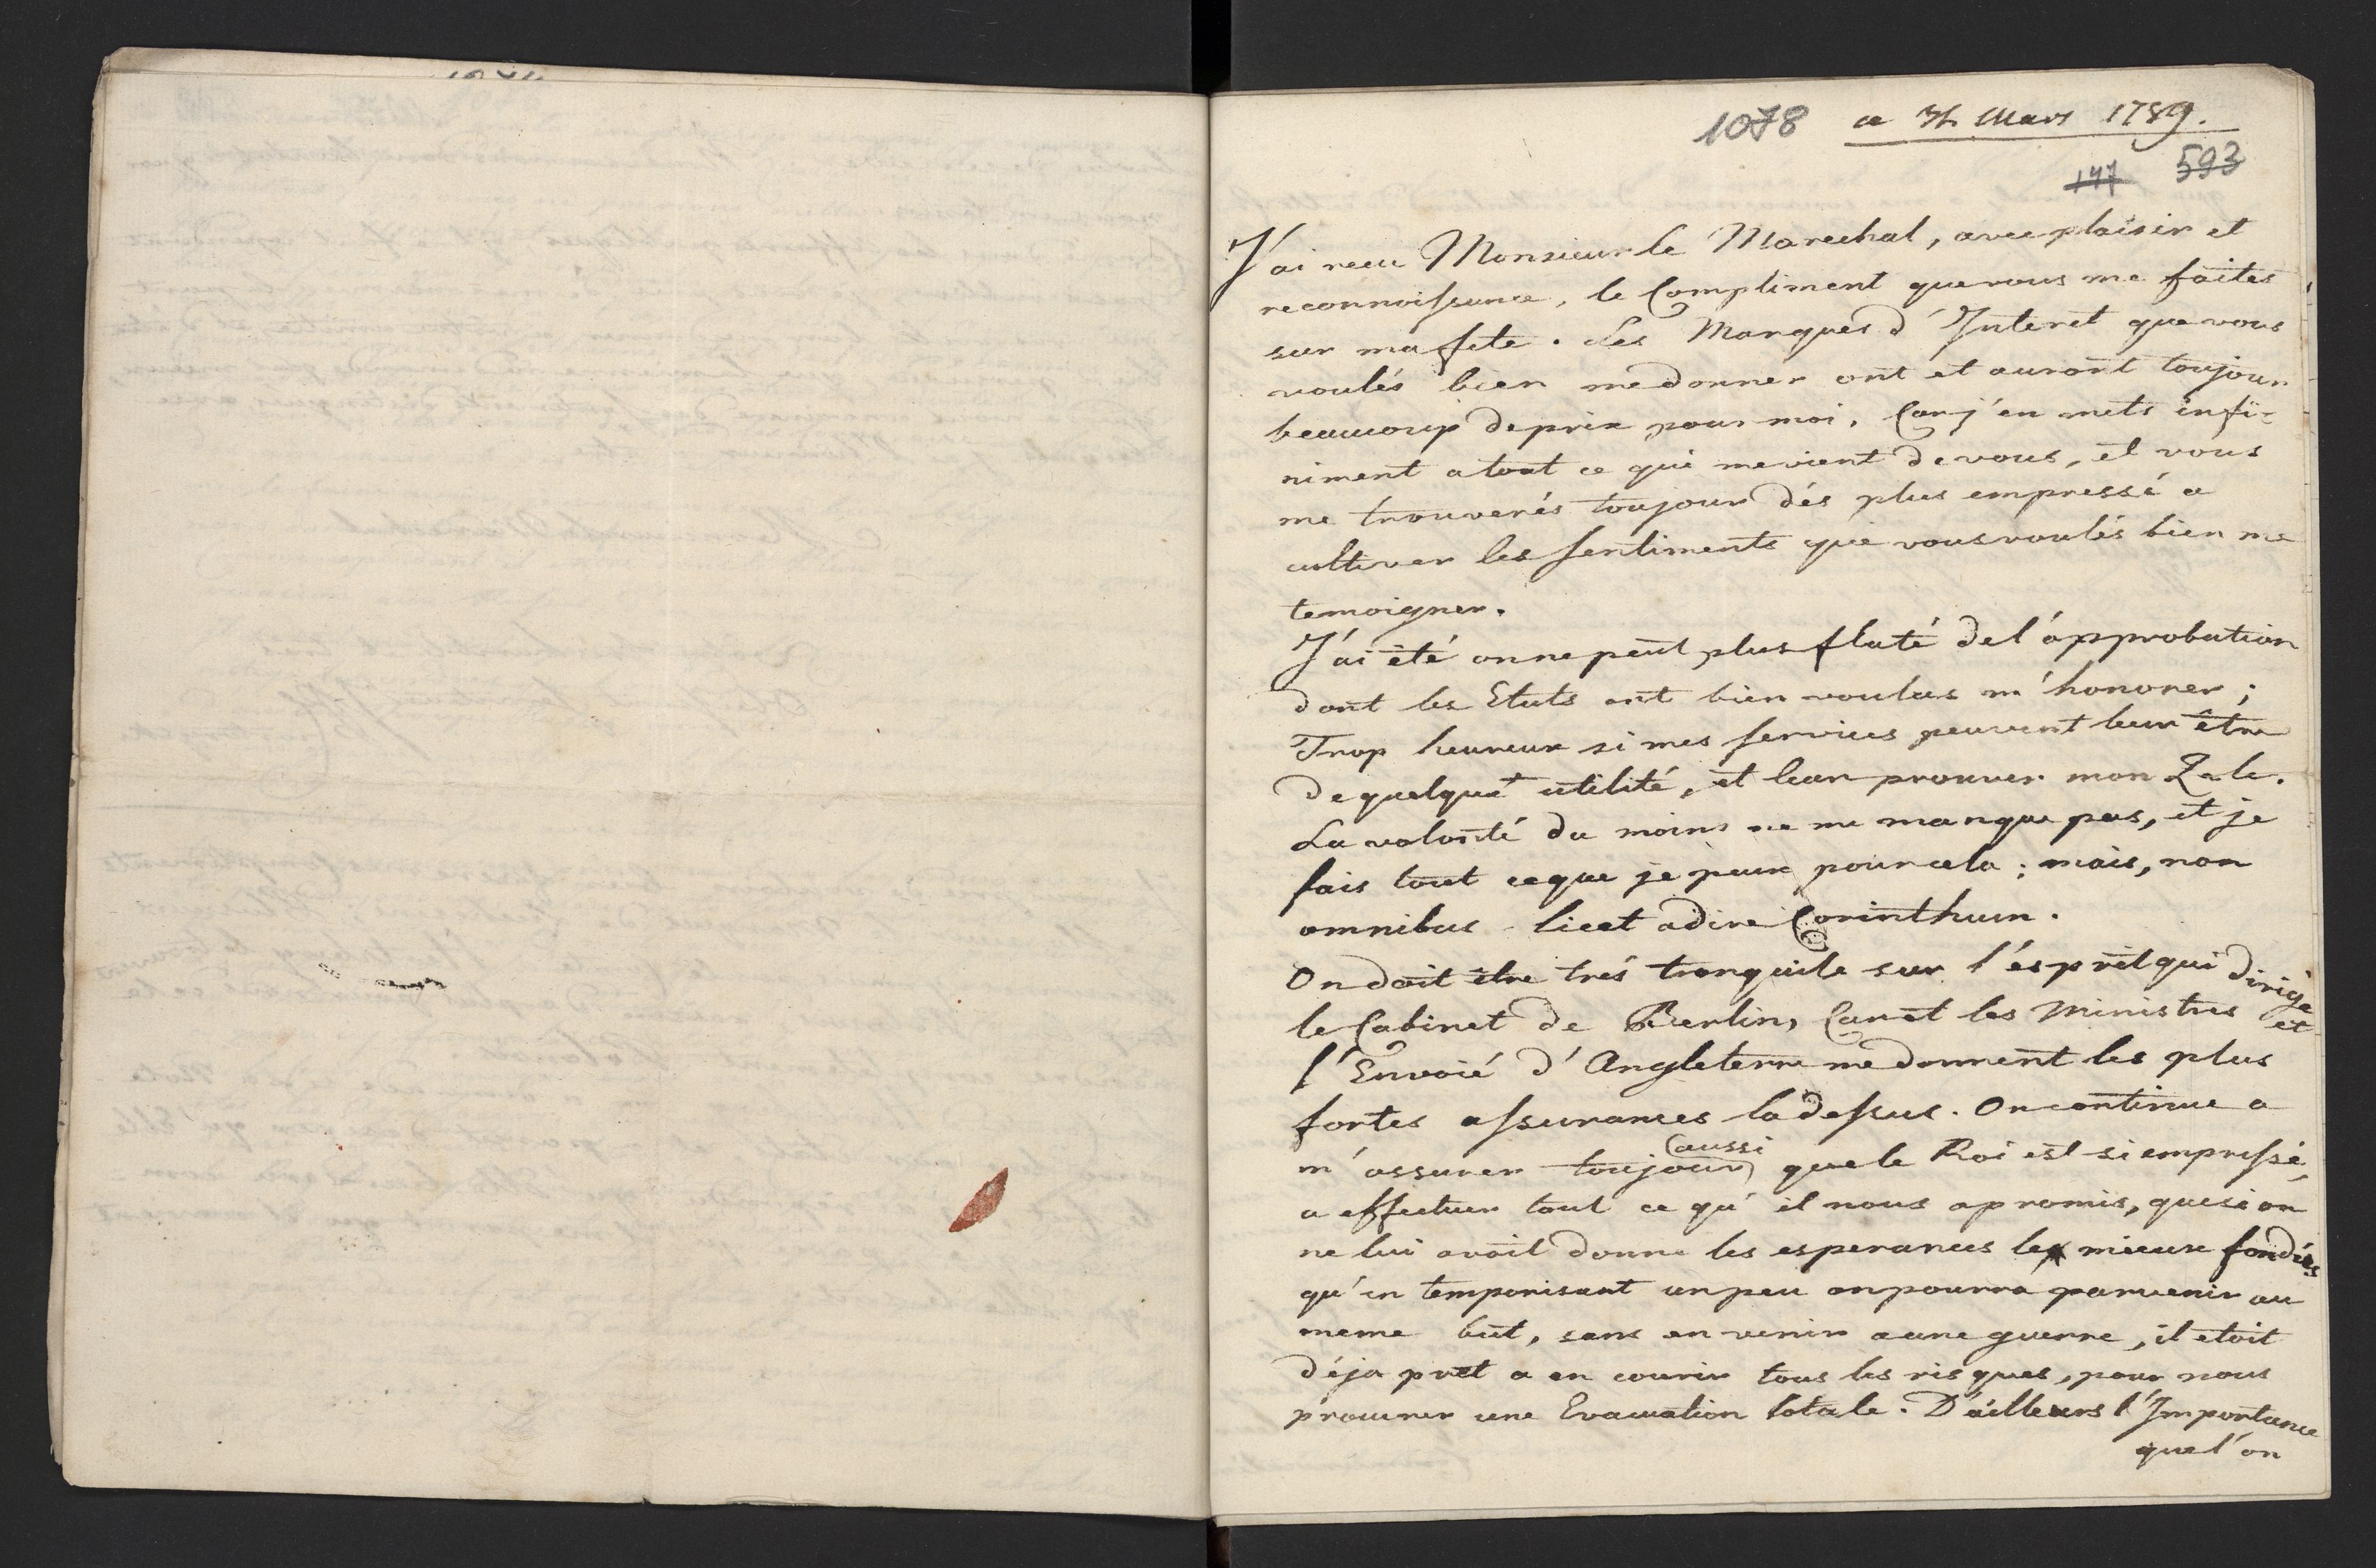 1078 ce 31 Mars 1789.
147 593
J'ai recu Monsieur le Marechal, avec plaisir et
reconnoissance, le Compliment que vous me faites
sur ma fete. Les Marques d'Interet que vous
voulés bien me donner ont et auront toujour
beaucoup de prix pour moi, Car j'en mets infi-
niment a tout ce qui me vient de vous, et vous
me trouverés toujour dés plus empressé a
cultiver les sentiments que vous voulés bien me
temoigner.
J'ai été on ne peut plus flaté de l'approbation
dont les Etats ont bien voulus m'honorer;
Trop heureux si mes services peuvent leur être
de quelque utilité, et leur prouver mon Zele.
La volonté du moins ne me manque pas, et je
fais tout ce que je peux pour cela; mais, non
omnibus licet adire Corinthum.
On doit être trés tranquile sur l'esprit qui dirige
le Cabinet de Berlin, Car et les Ministres et
l'Envoié d'Angleterre me donnent les plus
fortes assurances la dessus. On continue a
m'assurer toujour aussi que le Roi est si empressé,
a effectuer tout ce qu'il nous a promis, que si on
ne lui avoit donné les esperances les mieux fondées
qu'en temporisant un peu on pourra parvenir au
meme but, sans en venir a une guerre, il etoit
déja pret a en courir tous les risques, pour nous
procurer une Evacuation totale. D'ailleurs l'Importance
que l'on